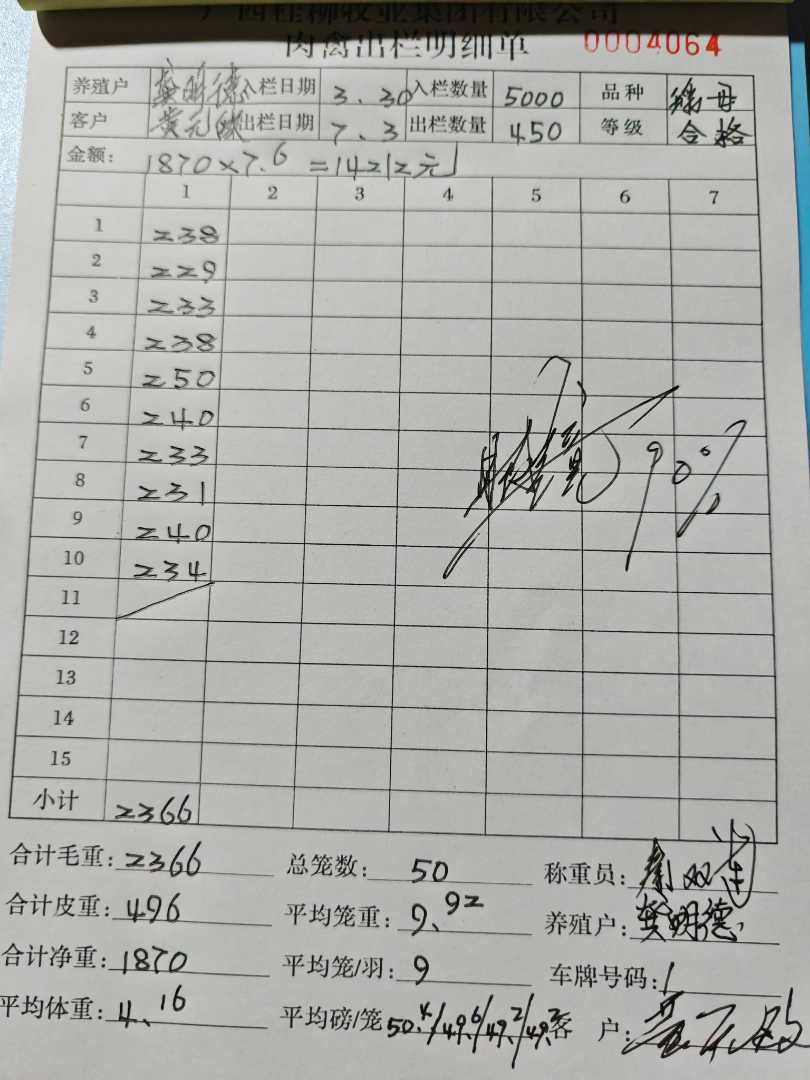 广西桂柳牧业集团有限公司
肉禽出栏明细单 0004064
养殖户 龚明德 入栏日期 3.30 入栏数量 5000 品种
客户 出栏日期 7.3 出栏数量 450 等级 合格
金额: 1870×7.6=14212元
1 2 3 4 5 6 7
1 238
2 229
3 233
4 238
5 250
6 240
7 233
8 231
9 240
10 234
11
12
13
14
15
小计 2366
90%
合计毛重: 2366 总笼数: 50 称重员:
合计皮重: 496 平均笼重: 9.92 养殖户: 龚明德
合计净重: 1870 平均笼/羽: 9 车牌号码: /
平均体重: 4.16 平均磅/笼 50.4/49.6/49.2/49.2 客 户: